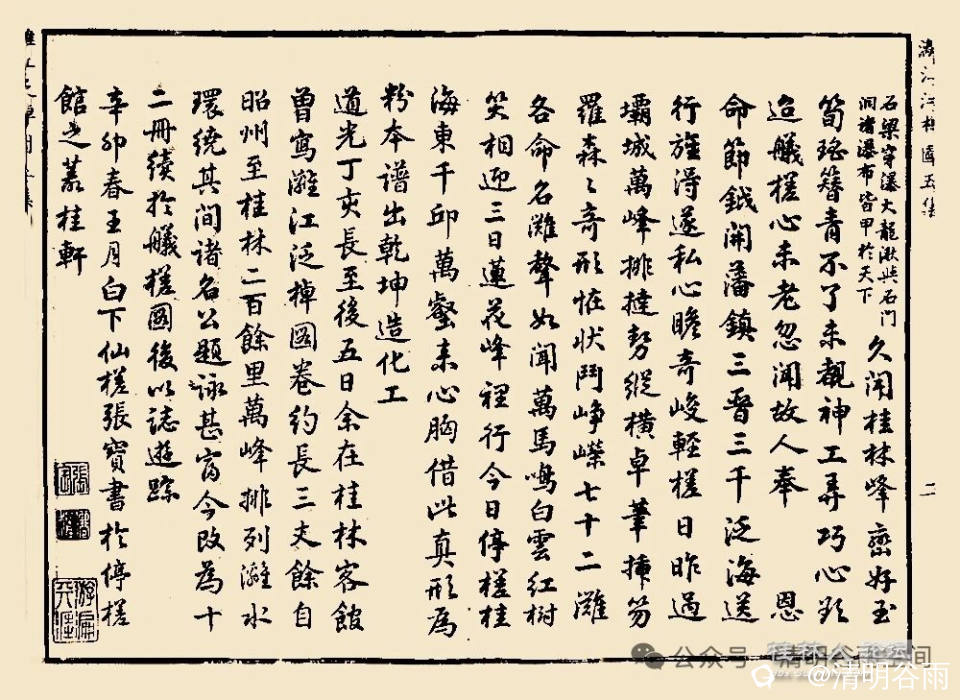 石梁穿瀑大龍湫與石門
洞諸瀑布皆甲於天下
久聞桂林峰巒好玉
筍瑤簪青不了未覩神工弄巧心
艤槎心未老忽聞故人奉 恩
命節鉞開藩鎮三晉三千泛海送
行旌得遂私心瞻奇峻輕槎日昨過
壩城萬峰排撻勢縱橫卓筆插笏
羅森々奇形恠狀鬥崢嶸七十二灘
各命名灘聲如聞萬馬鳴白雲紅樹
笑相迎三日蓮花峰裡行今日停槎桂
海東千邱萬壑來心胸借此真形為
粉本譜出乾坤造化工
道光丁亥長至後五日余在桂林客館
曾寫灕江泛棹圖卷約長三丈餘自
昭州至桂林二百餘里萬峰排列灕水
環繞其間諸名公題詠甚富今改為十
二冊續於艤槎圖後以誌遊踪
辛卯春王月白下仙槎張寶書於停槎
館之叢桂軒
二
公众号·清明谷雨空间
@清明谷雨